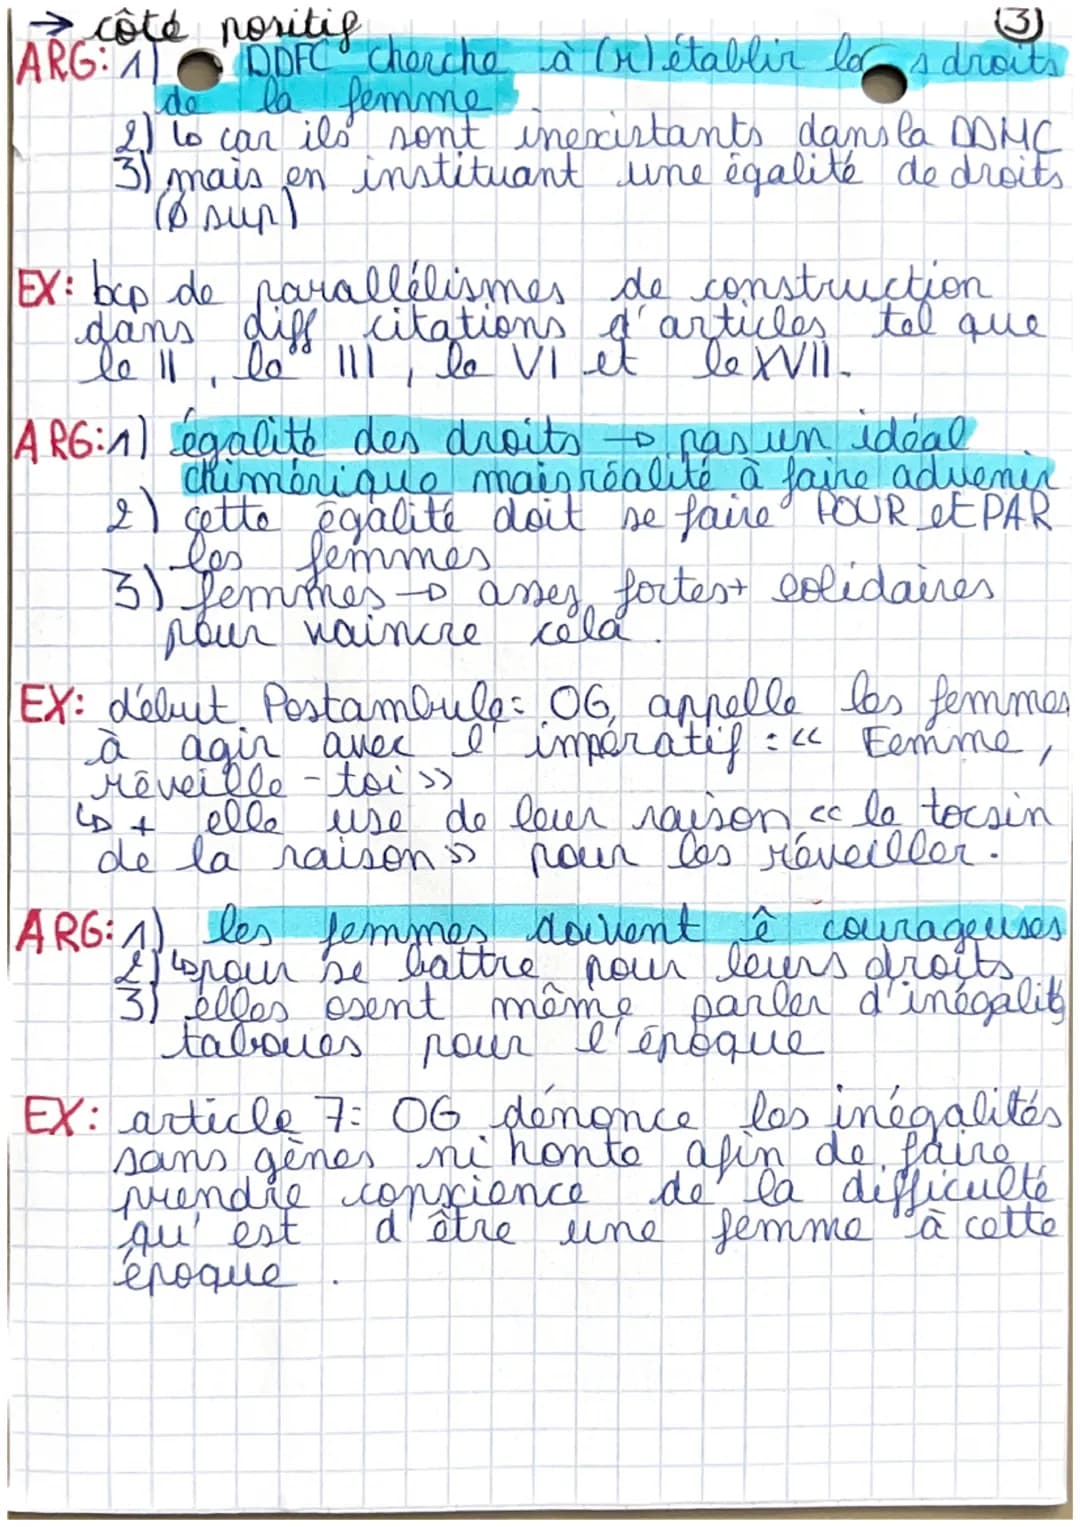 → côté positif
(3)
ARG: 1) DDFC cherche à (r)établir les droits
de la femme
2) ↳ car ils sont inexistants dans la DDHC
3) mais en instituant une égalité de droits
(Ø sup)
EX: bcp de parallélismes de construction
dans diff citations d'articles tel que
le II, le III, le VI et le XVII.
ARG: 1) égalité des droits → pas un idéal
chimérique mais réalité à faire advenir
2) cette égalité doit se faire POUR et PAR
les femmes
3) femmes → assez fortes + solidaires
pour vaincre cela.
EX: début Postambule: OG, appelle les femmes
à agir avec l'impératif : « Femme,
réveille-toi »
↳ + elle use de leur raison « le tocsin
de la raison » pour les réveiller.
ARG: 1) les femmes doivent ê courageuses
2) ↳ pour se battre pour leurs droits
3) elles osent même parler d'inégalités
taboues pour l'époque
EX: article 7: OG dénonce les inégalités
sans gènes ni honte afin de faire
prendre conscience de la difficulté
qu'est d'être une femme à cette
époque.